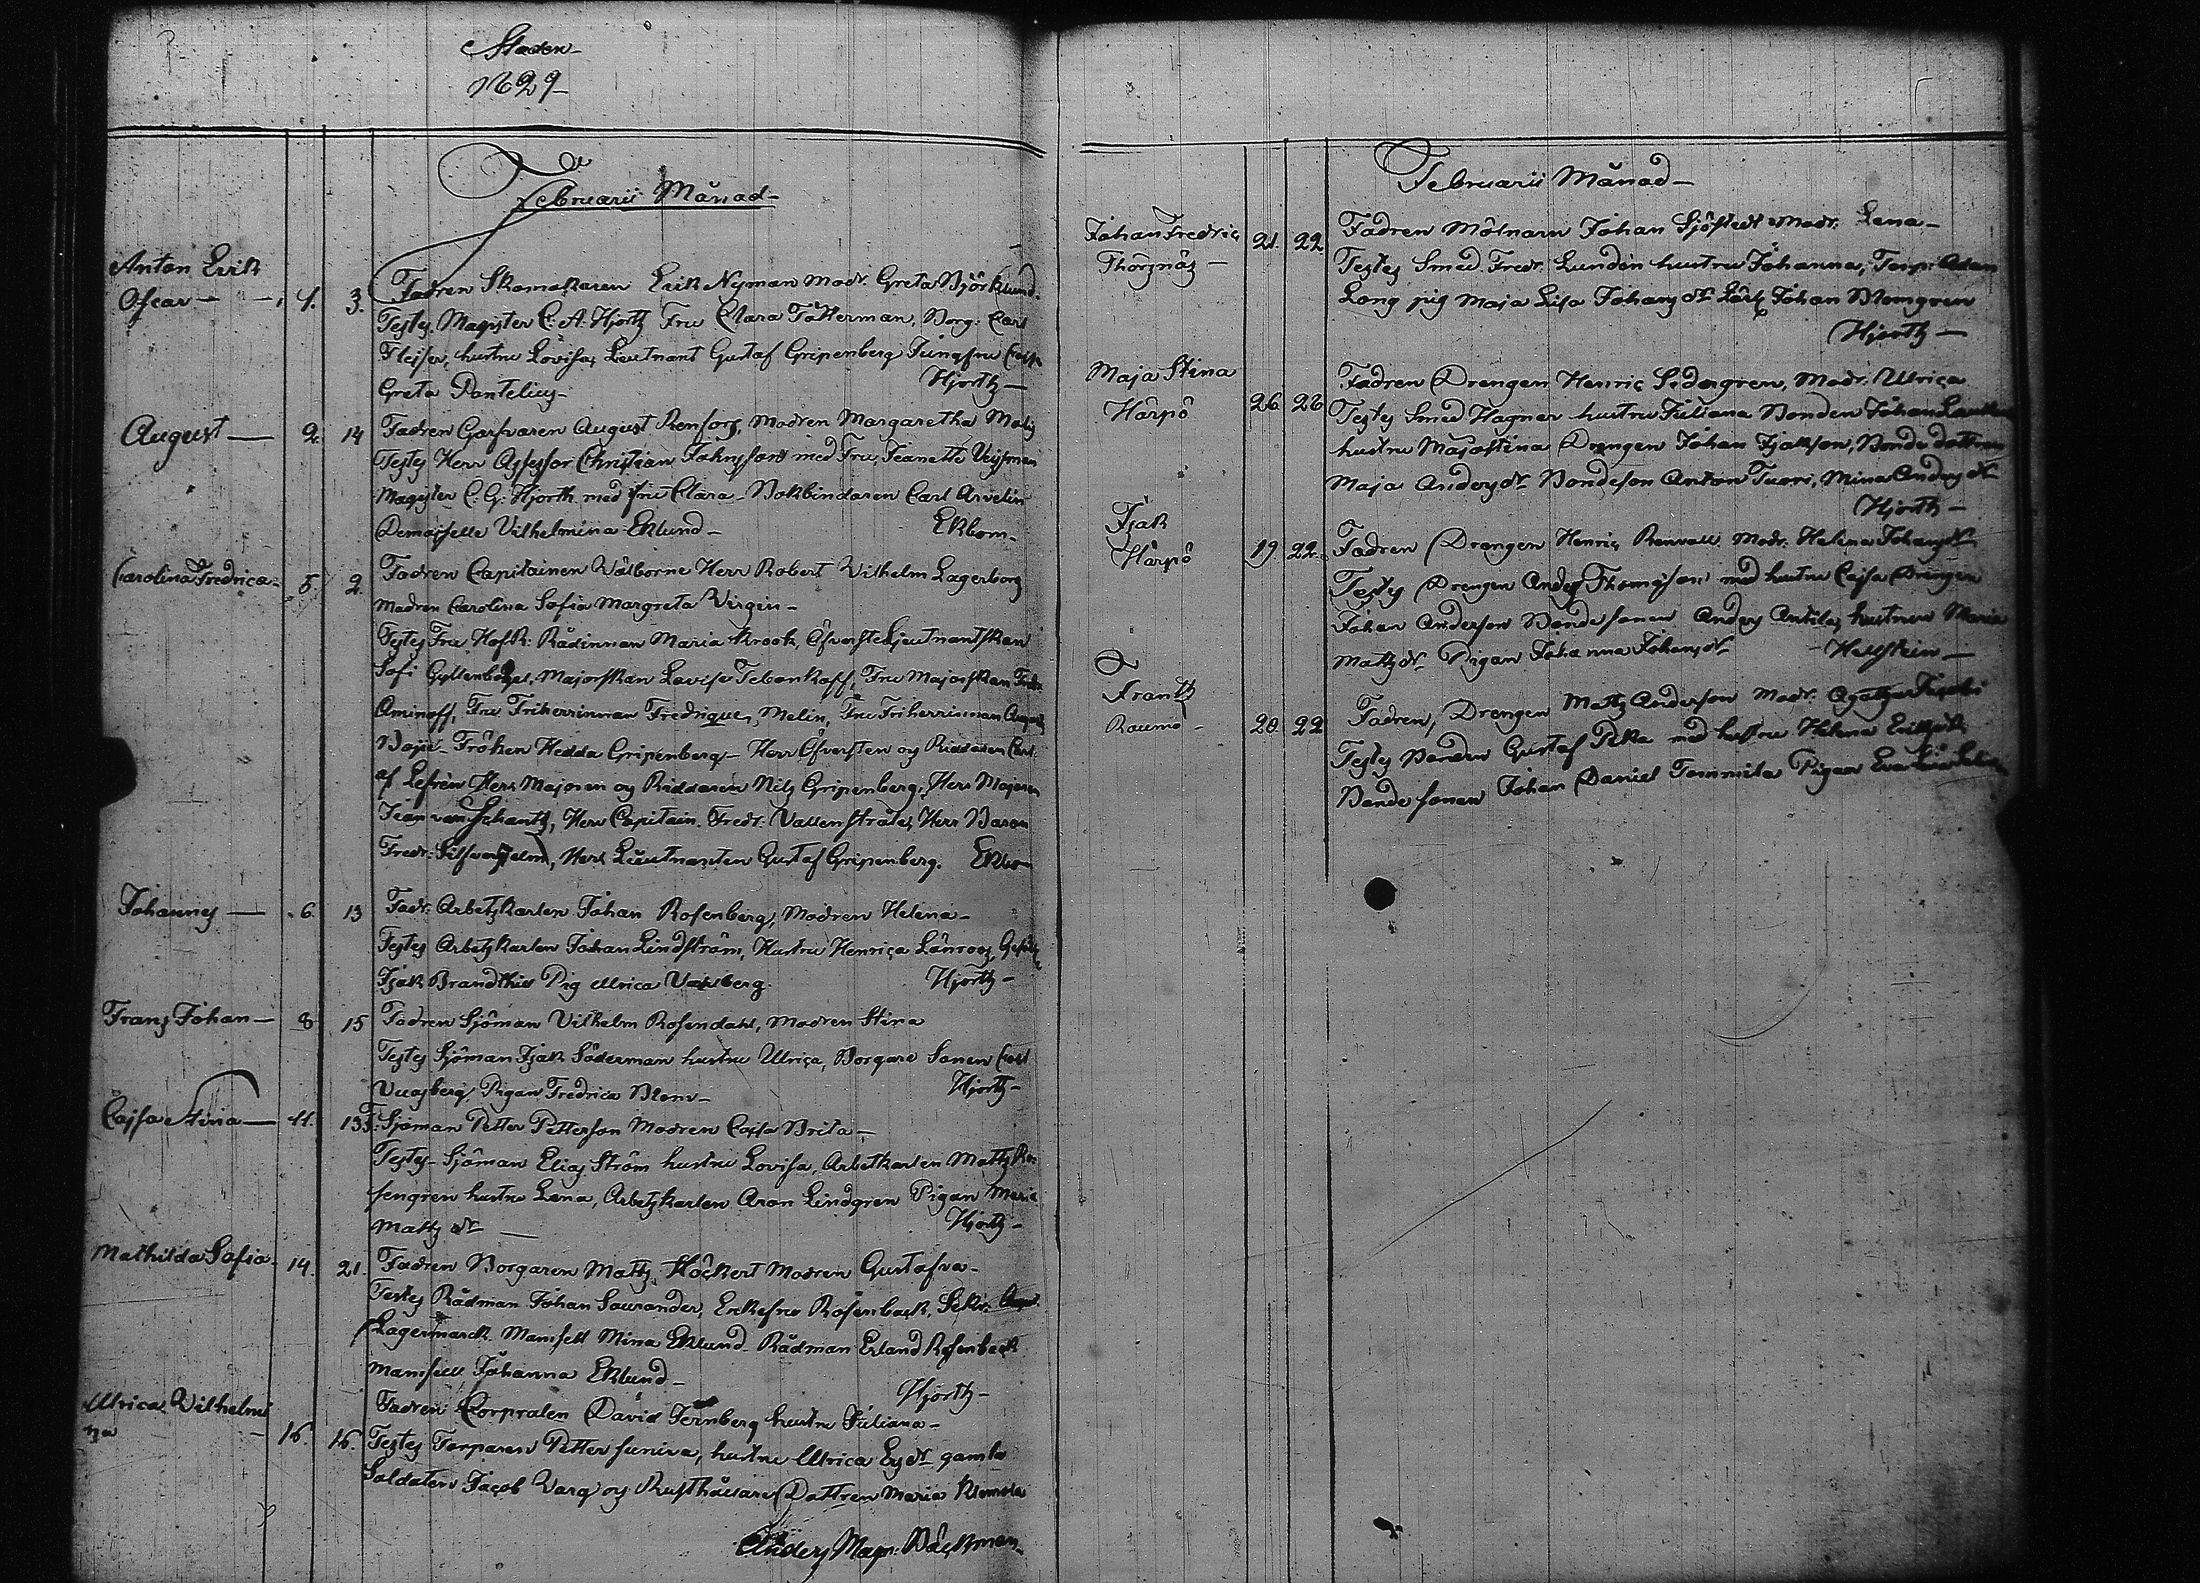 Staden
1829
Februarii Månad
Anton Erik
Oscar 1. 3. Fadren Skomakaren Erik Nyman Modr. Greta Björklund.
Testes, Magister C. A. Hjorth Fru Clara Tötterman, Borg: Carl
hustru Lovisa, Lieutnant Gustaf Gripenberg Jungfru
Greta Pantelius Hjorth
August 2. 14 Fadren Garfvaren August Renfors, Modren Margaretha
Testes Herr Assessor Christian Johnsson med Fru, Jeanette
Magister C. G. Hjorth med fru Clara Bokbindaren Carl Arvelin
Demoiselle Vilhelmina Eklund Ekbom
Carolina Fredrica 5. 9. Fadren Capitainen Välborne Herr Robert Vilhelm Lagerborg
Modren Carolina Sofia Margreta Virgin
Testes Fru HofR: Rådinnan Maria Krook, Öfverste Ljeutnantskan
Sofi Gyllenbögel, Majorskan Lovise Tebenkoff, Fru Majorskan
Aminoff, Fru Friherrinnan Fredrique, Melin, Fru Friherrinnan
Boije Fröken Hedda Gripenberg Herr Öfversten og Riddaren Carl
af Lefrén Herr Majoren og Riddaren Nils Gripenberg, Herr Majoren
Jean von Schantz, Herr Capitain Fredr. Vallenstråle, Herr Baron
Fredr. Silfverhjelm, Herr Lieutnanten Gustaf Gripenberg. Ekbom
Johannes 6. 13 Fadr. Arbetskarlen Johan Rosenberg, Modren Helena
Testes Arbetskarlen Johan Lindström, Hustru Henrica Lönroos,
Isak Brandthill Pig Ulrica Hjorth
Frans Johan 8 15 Fadren Sjöman Vilhelm Rosendahl, Modren Stina
Testes Sjöman Isak Söderman hustru Ulrica, Borgare Sonen Carl
Pigan Fredrica Blom Hjorth
Cajsa Stina 11. 13 F. Sjöman Petter Petterson Modren Cajsa Brita
Testes Sjöman Elias Ström hustru Lovisa, Arbetkarlen Matts Ro-
sengren hustru Lena, Arbetskarlen Aron Lindgren Pigan Maria
Matts dr Hjorth
Mathilda Sofia 14. 21. Fadren Borgaren Matts Höckert Modren Gustafva
Testes Rådman Johan Saurander, Enkefru Rosenback, Sekr.
Lagermarck Mamsell Mina Eklund Rådman Erland Rosenback
Mamsell Johanna Eklund Hjorth
Ulrica Vilhelmi
na 16. 16. Fadren Corpralen David Fernberg hustru Juliana
Testes Torparen Petter Suniva, hustru Ulrica Es dr gamla
Soldaten Jacob Varg og Rusthållare Dottren Maria Klemola
Anders Magn: Bäckman
Februarii Månad
Johan Fredric
Thorsnäs 21. 22. Fadren Mölnaren Johan Sjöstedt Modr. Lena
Testes Smed Fredr. Lundén hustru Johanna, Torp: Adam
Long pig Maja Lisa Johans dr Johan Blomgren
Hjorth
Maja Stina
Härpö 26. 28 Fadren Drengen Henric Sedergren, Modr. Ulrica
Testes Smed Hagner hustru Juliana Bonden Johan
hustru Majastina Drengen Johan Isakson, Bonde dottren
Maja Anders dr Bondeson Anton Tuori, Mina Anders dr
Hjorth
Isak
Härpö 19. 22. Fadren Drengen Henric Renvall Modr. Helina Johans dr
Testes Drengen Anders Thomasson med hustru Cajsa Drengen
Johan Anderson Bonde sonen Anders Antila, hustrun Maria
Matts dr Pigan Johanna Johans dr Hellstein
Frantz
Raumo 20. 22 Fadren, Drengen Matts Anderson Modr. Agatha
Testes Bonden Gustaf Pika med hustru Helena
Bonde sonen Johan Daniel Tommila Pigan Eva